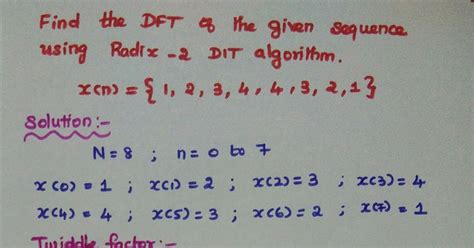 Find the DFT of the given sequence
using Radix-2 DIT algorithm.
x(n) = { 1, 2, 3, 4, 4, 3, 2, 1 }
Solution:-
N=8 ; n=0 to 7
x(0)=1 ; x(1)=2 ; x(2)=3 ; x(3)=4
x(4)=4 ; x(5)=3 ; x(6)=2 ; x(7)=1
Twiddle factor:-